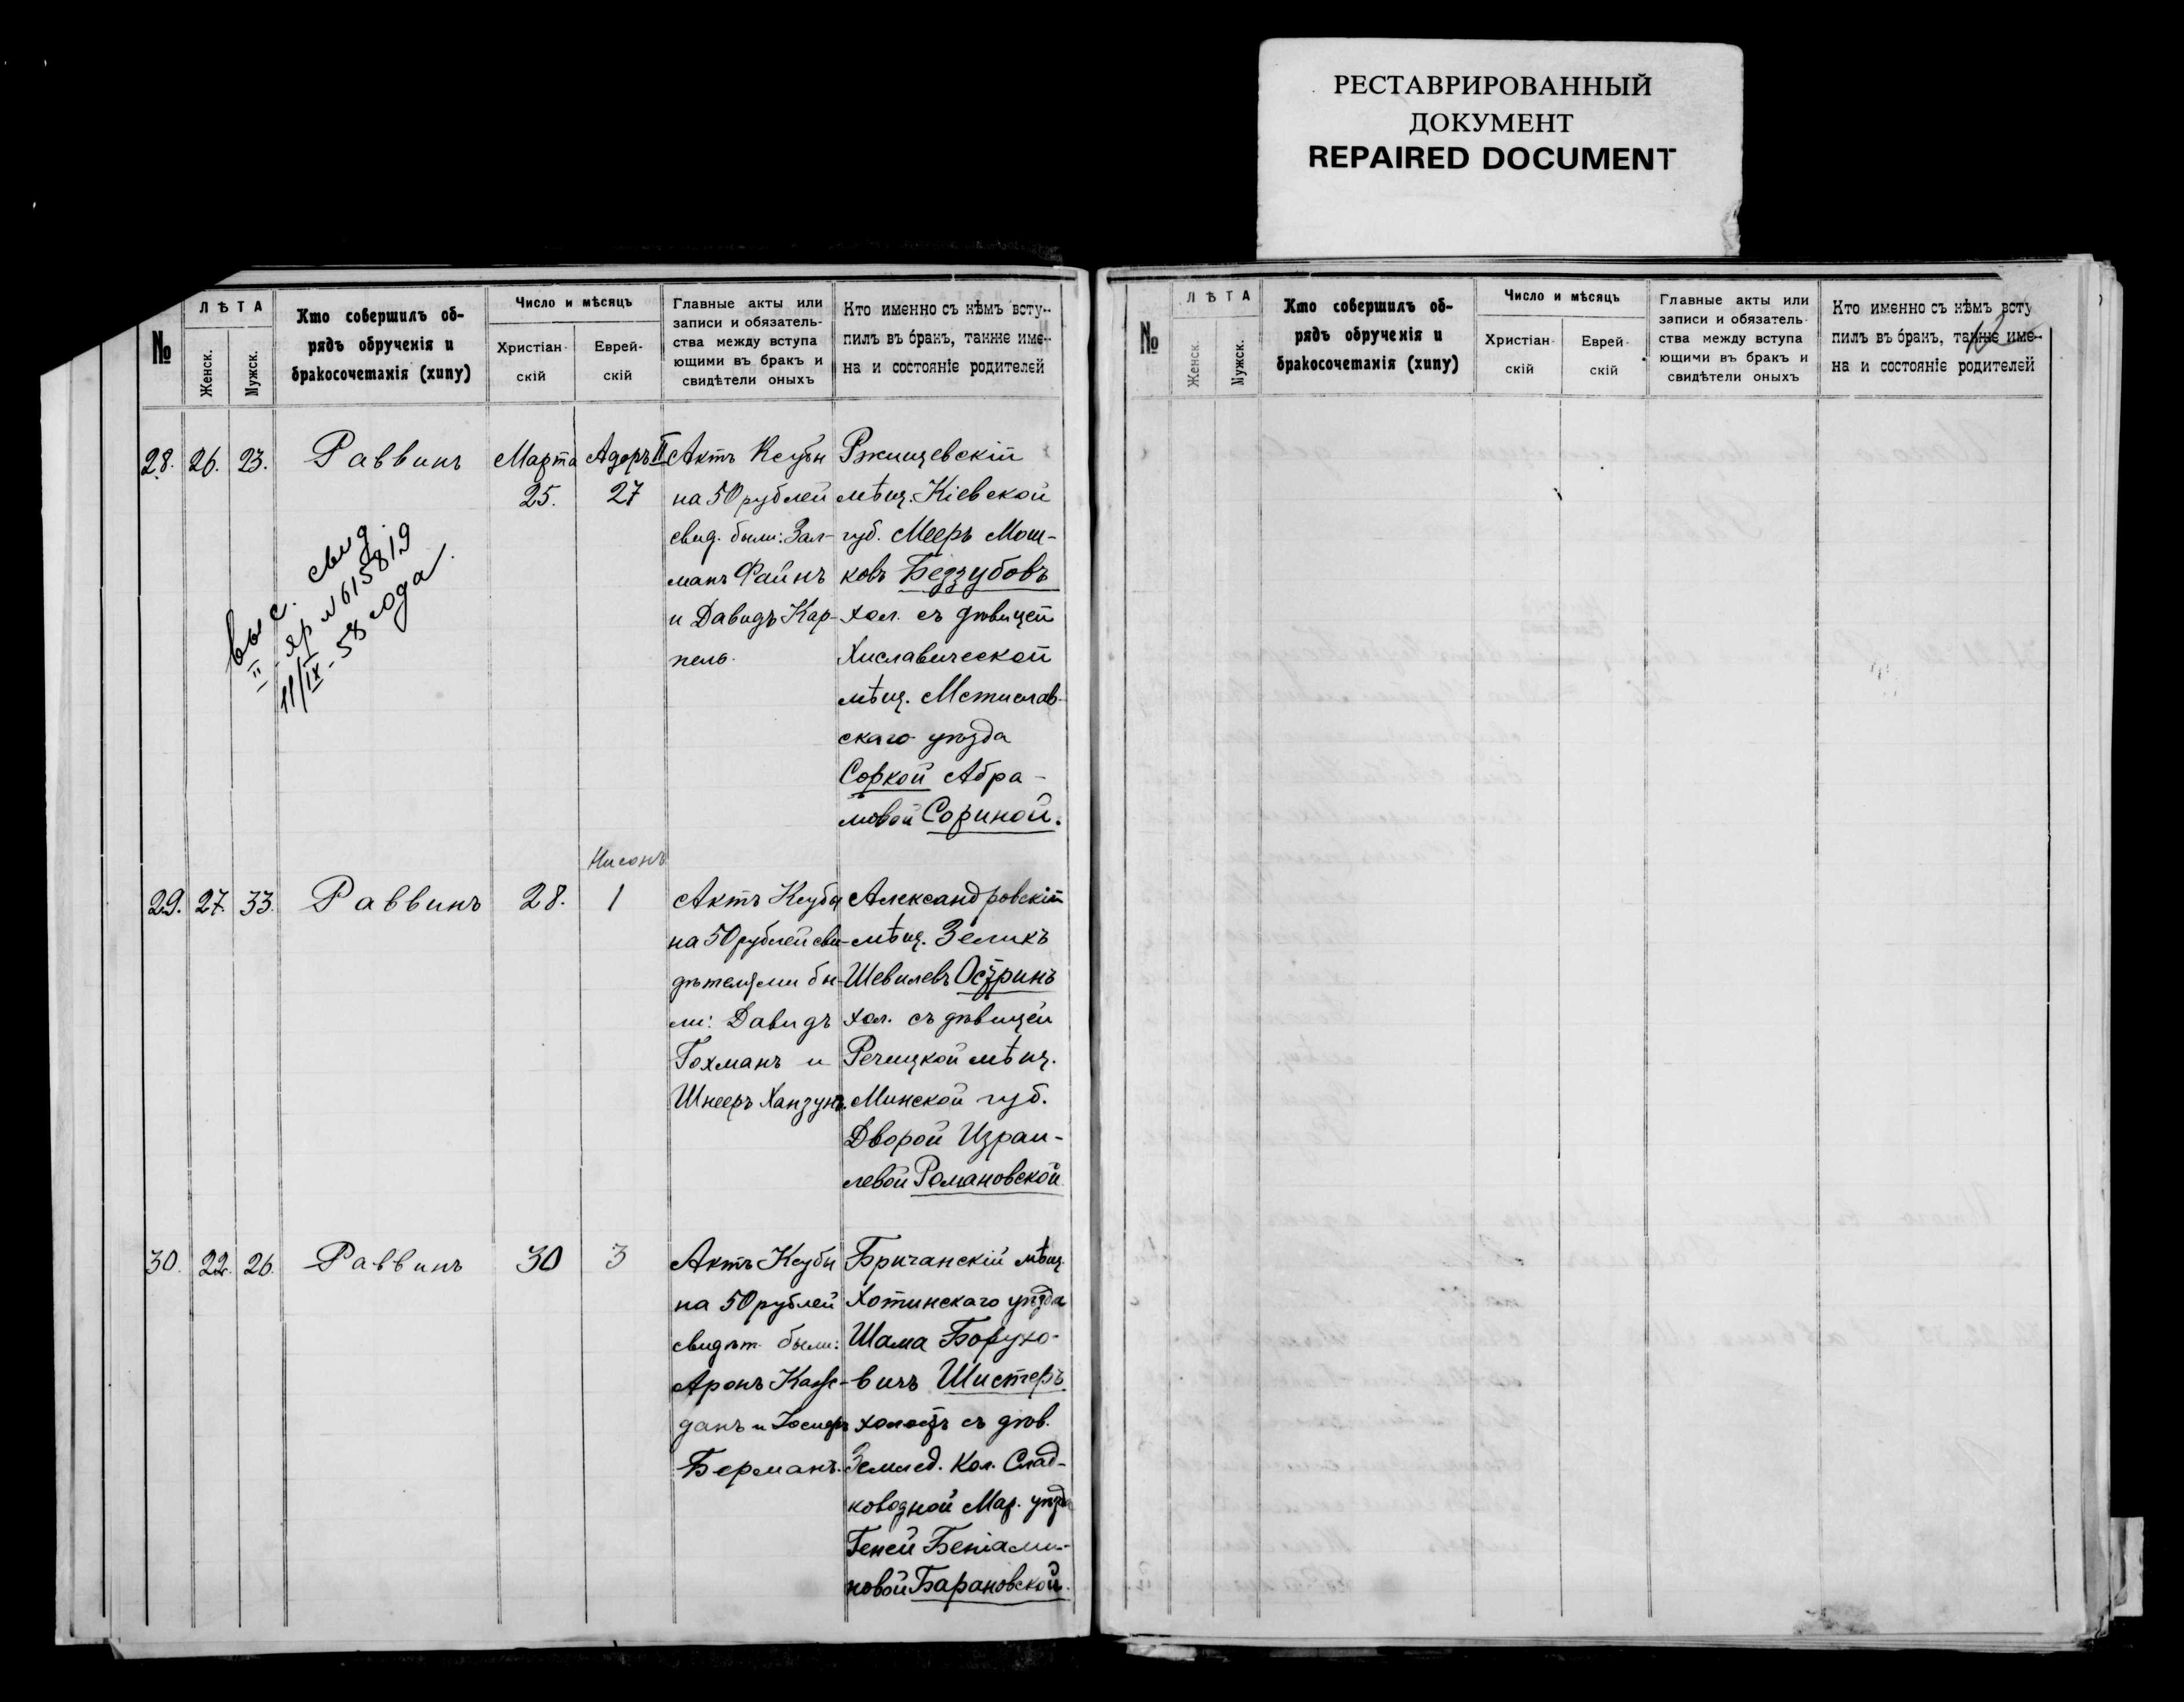 РЕСТАВРИРОВАННЫЙ
ДОКУМЕНТ
REPAIRED DOCUMENT
№
ЛѢТА
Женск.
Мужск.
Кто совершилъ об-
рядъ обрученія и
бракосочетанія (хипу)
Число и мѣсяцъ
Христіан-
скій
Еврей-
скій
Главные акты или
записи и обязатель-
ства между вступа
ющими въ бракъ и
свидѣтели оныхъ
Кто именно съ кѣмъ всту-
пилъ въ бракъ, также име-
на и состояніе родителей
28. 26. 23.
Раввинъ
Марта
25.
Адоръ II
27
Актъ Ксубы
на 50 рублей
свид. были: Зал-
манъ Файнъ
и Давидъ Кар-
пель.
Ржищевскій
мѣщ. Кіевской
губ. Мееръ Мош-
ковъ Беззубовъ
хол. съ дѣвицей
Хиславической
мѣщ. Мстислав-
скаго уѣзда
Соркой Абра-
мовой Сориной.
выс. свид
II - яр № 615819
11/IX - 58 года.
29. 27. 33.
Раввинъ
28.
Нисонъ
1
Актъ Ксубы
на 50 рублей сви-
дѣтелями бы-
ли: Давидъ
Гохманъ и
Шнееръ Ханзунъ.
Александровскій
мѣщ. Зеликъ
Шевилевъ Остринъ
хол. съ дѣвицей
Речицкой мѣщ.
Минской губ.
Дворой Израи-
левой Романовской
30. 22. 26.
Раввинъ
30
3
Актъ Ксубы
на 50 рублей
свидѣт. были:
Аронъ
и
Берманъ.
Бричанскій мѣщ.
Хотинскаго уѣзда
Шама Борухо-
вичъ Шистеръ
холостъ съ дѣв.
Землед. Кол. Слад-
ководной Мар. уѣзда
Геней Беніами-
новой Барановской.
№
ЛѢТА
Женск.
Мужск.
Кто совершилъ об-
рядъ обрученія и
бракосочетанія (хипу)
Число и мѣсяцъ
Христіан-
скій
Еврей-
скій
Главные акты или
записи и обязатель-
ства между вступа
ющими въ бракъ и
свидѣтели оныхъ
Кто именно съ кѣмъ всту
пилъ въ бракъ, также име-
на и состояніе родителей